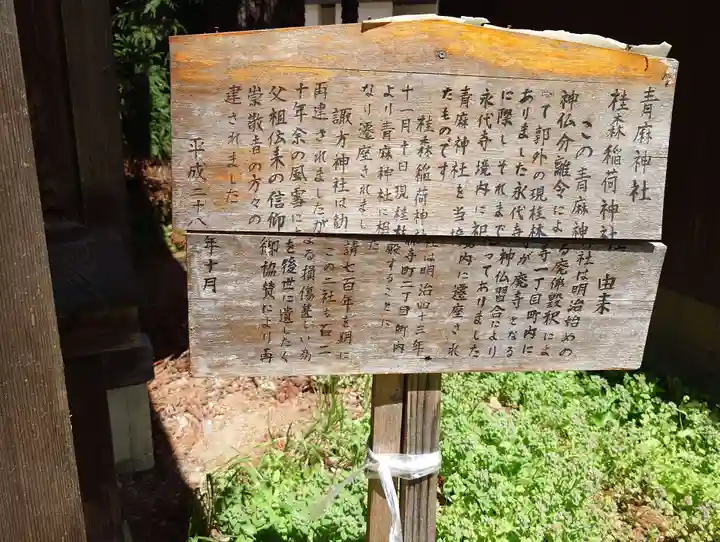 青麻神社
桂森稲荷神社 由来
この青麻神社は明治始めの
神仏分離令による廃佛毀釈によ
って郭外の現桂林寺一丁目町内に
ありました永代寺が廃寺となる
に際しそれまで神仏習合により
永代寺境内に祀ってありました
青麻神社を当境内に遷座され
たものです
桂森稲荷神社は明治四十三年
十一月十日現桂林寺町二丁目町内
より青麻神社に相殿することに
なり遷座されました
諏方神社は勧請七百年を期に
再建されましたがこの二社も百二
十年余の風雪による損傷甚しい為
父祖伝来の信仰を後世に遺したく
崇敬者の方々の御協賛により再
建されました
平成二十八年十月